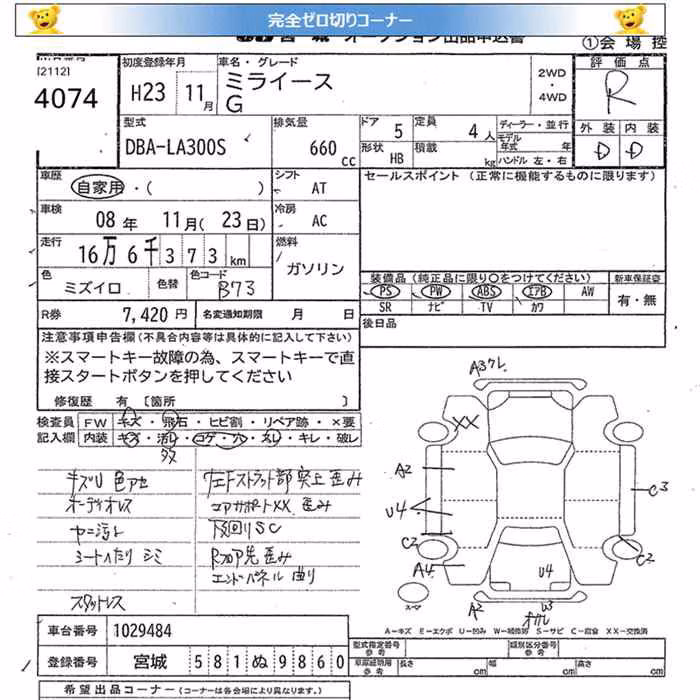 完全ゼロ切りコーナー
宮城 オークション出品申込書 ①会場控
[2112]
4074
初度登録年月 車名・グレード
H23 11月 ミライース
G
2WD
・
4WD
評価点
R
外装 内装
D D
型式 排気量 ドア 5 定員 4人 ディーラー・並行
DBA-LA300S 660 cc
モデル年式 年
形状 HB 積載 kg ハンドル 左・右
車歴 シフト セールスポイント (正常に機能するものに限ります)
自家用・( ) AT
車検 冷房
08年 11月(23日) AC
走行 燃料
16万6千373km ガソリン
色 色替 色コード
ミズイロ B73
装備品(純正品に限り○をつけてください) 新車保証書
PS PW ABS エアB AW 有・無
SR ナビ TV カワ
R券 7,420円 名変通知期限 月 日
後日品
注意事項申告欄(不具合内容等は具体的に記入して下さい)
※スマートキー故障の為、スマートキーで直
接スタートボタンを押してください
修復歴 有 [箇所 ]
検査員 FW キズ・飛石・ヒビ割・リペア跡・×要
記入欄 内装 キズ・汚れ・コゲ・穴・スレ・キレ・破レ
多々
キズU 色アセ
オーディオレス
ヤニ汚レ
シートヘたり シミ
スタットレス
左Fストラット部突上歪み
コアサポートXX 歪み
下回りSC
Rフロア先 歪み
エンドパネル 曲り
A3クレ
XX
A2
U4
C2
A4
C3
C2
U4
A2 U3
スーマ
A-キズ E-エクボ U-凹み W-補修跡 S-サビ C-腐食 XX-交換済
車台番号 1029484
登録番号 宮城 581ぬ9860
型式指定番号 参考 類別区分番号 参考
車庫証明用 参考 長さ cm 幅 cm 高さ cm
希望出品コーナー (コーナーは各会場により異なります。)